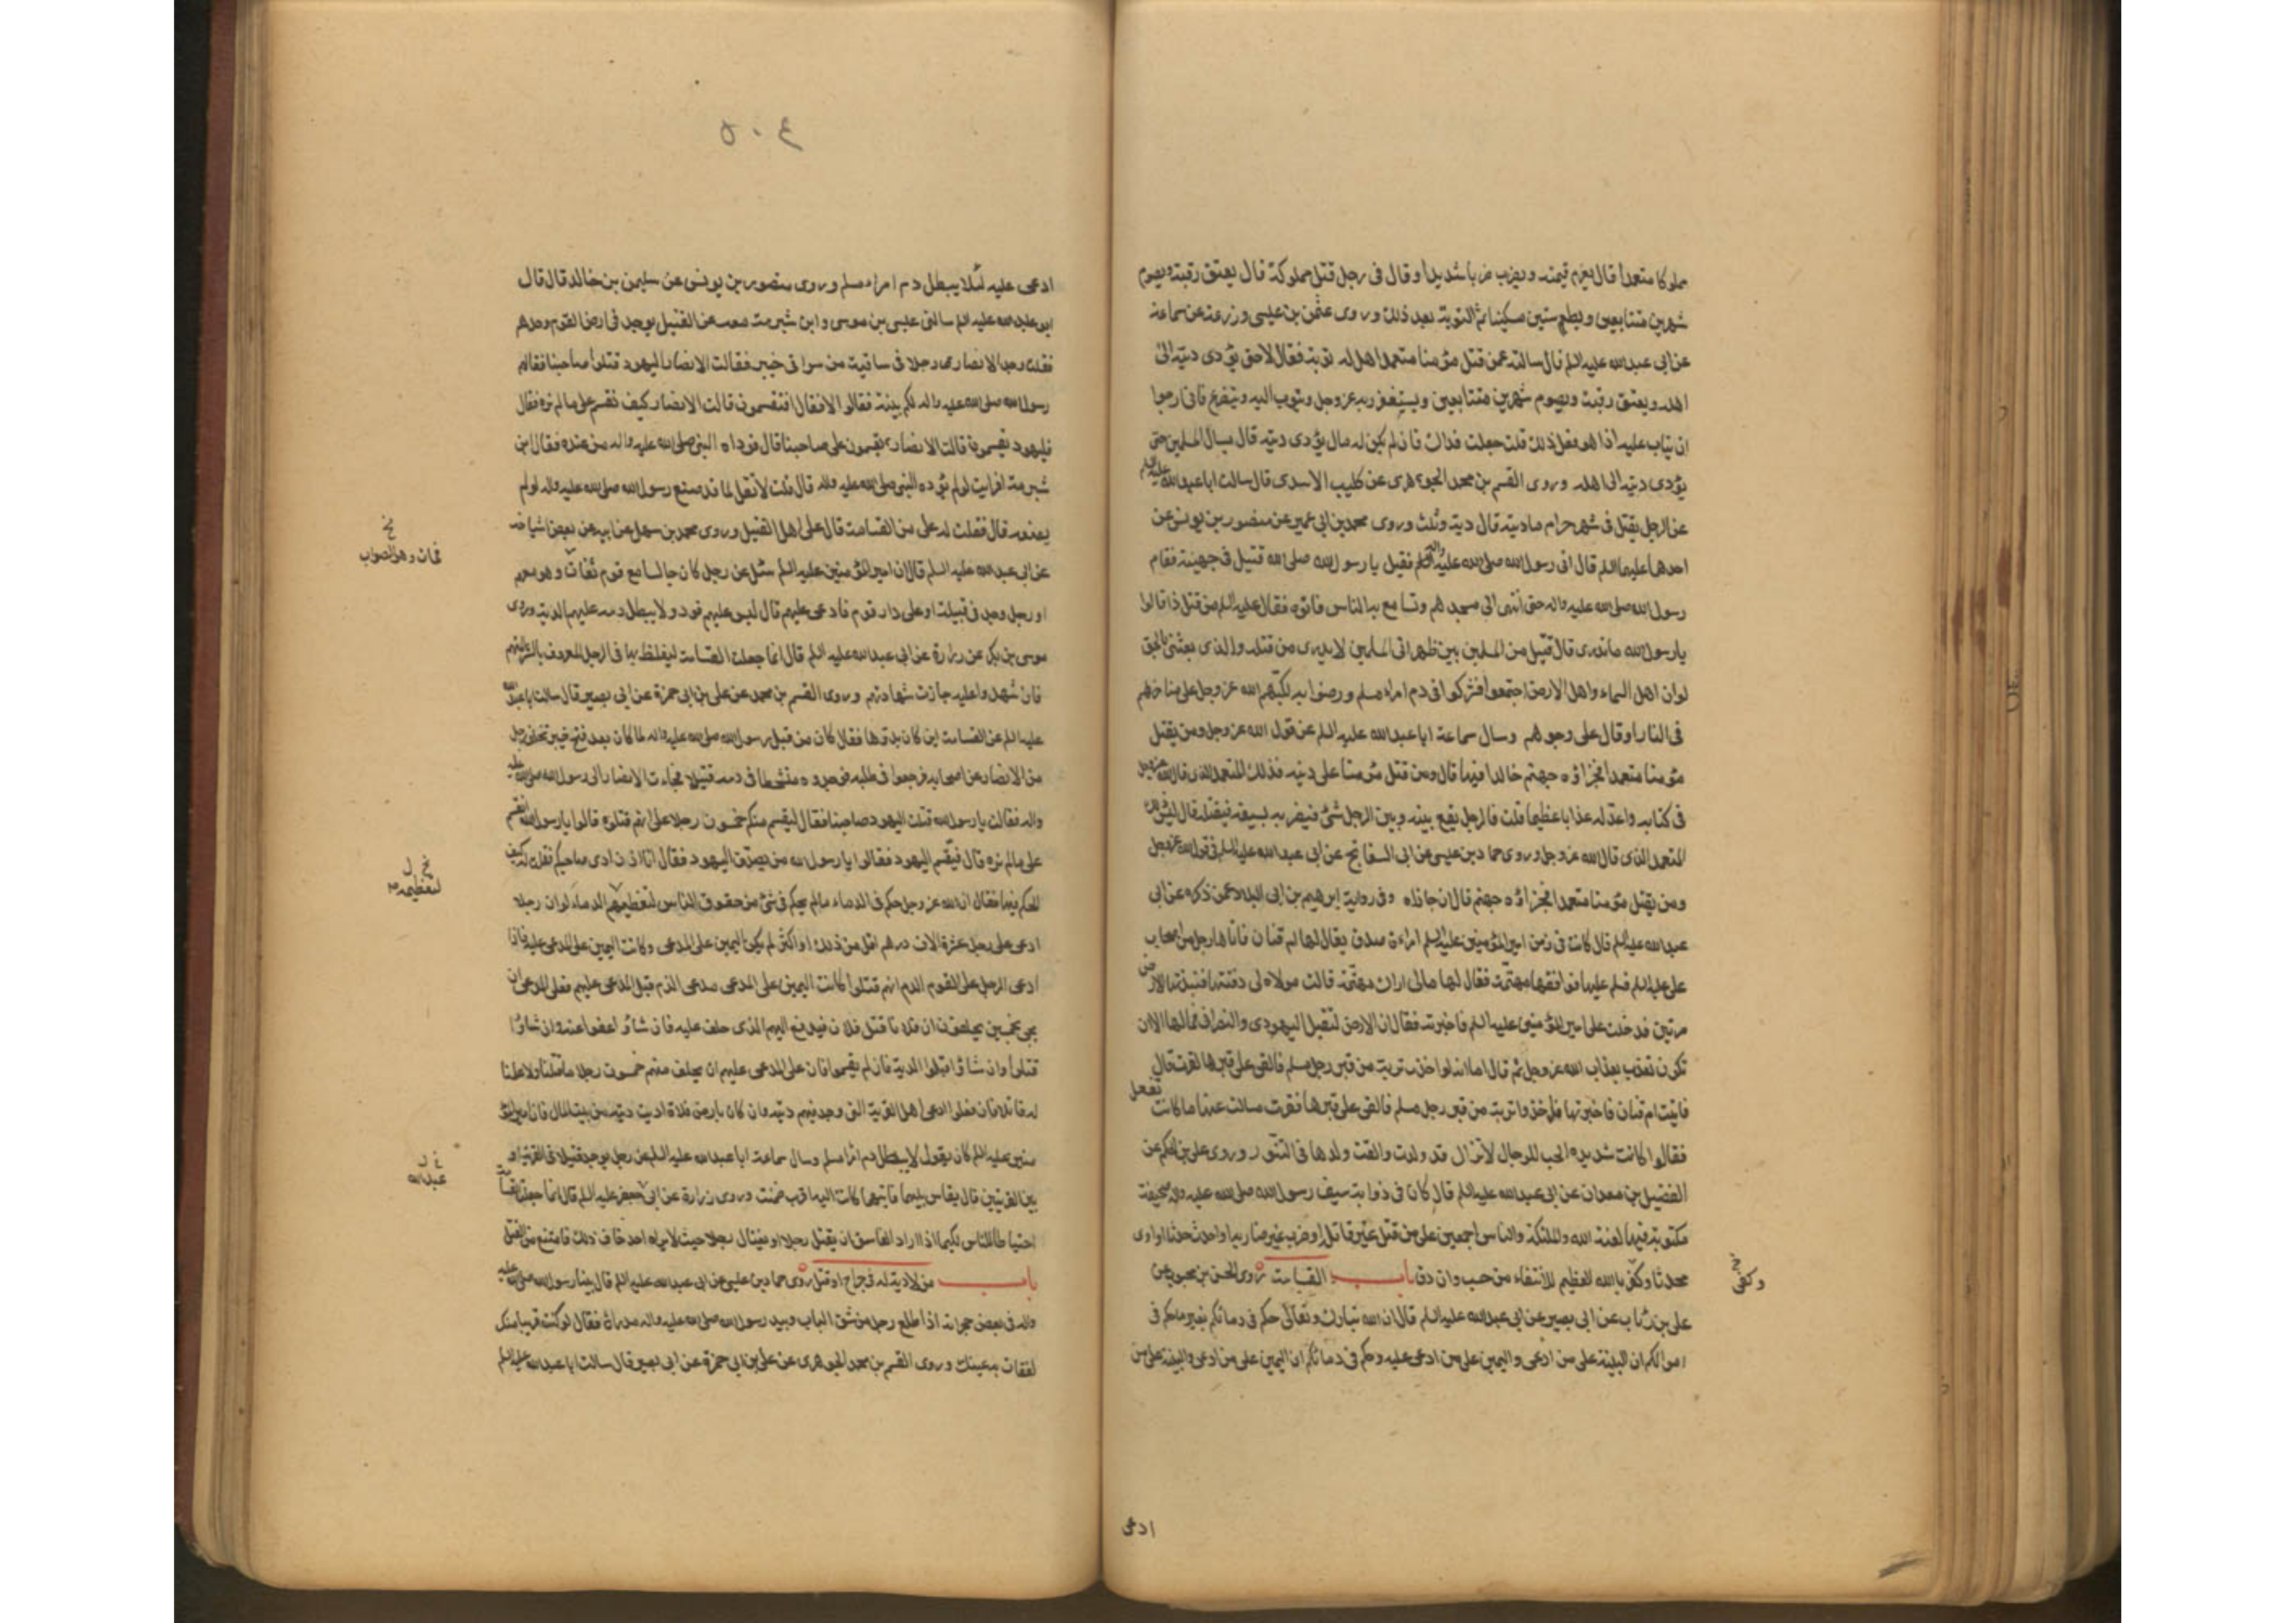 مملوكا متعمدا قال يغرم قيمته ويضرب ضربا شديدا وقال فى رجل قتل مملوكته قال يعتق رقبة ويصوم
شهرين متتابعين ويطعم ستين مسكينا ثم التوبة بعد ذلك وروى عثمن بن عيسى وزرعة عن سماعة
عن ابى عبد الله عليه السلم قال سالته عمن قتل مؤمنا متعمدا هل له توبة فقال لا حتى يؤدى ديته الى
اهله ويعتق رقبة ويصوم شهرين متتابعين ويستغفر ربه عز وجل ويتوب اليه ويتضرع فانى ارجوا
ان يتاب عليه اذا هو فعل ذلك قلت جعلت فداك فان لم يكن له مال يؤدى ديته قال يسال المسلمين حتى
يؤدى ديته الى اهله وروى القسم بن محمد الجوهرى عن كليب الاسدى قال سالت ابا عبد الله عليه السلم
عن الرجل يقتل فى شهر حرام ما ديته قال دية وثلث وروى محمد بن ابى عمير عن منصور بن يونس عن
احدهما عليهما السلم قال اتى رسول الله صلى الله عليه واله فقيل يا رسول الله صلى الله قتيل فى جهينة فقام
رسول الله صلى الله عليه واله حتى انتهى الى مسجدهم وتسامع به الناس فاتوه فقال عليه السلم من قتل ذا قالوا
يا رسول الله ما ندرى قال قتيل من المسلمين بين ظهرانى المسلمين لا يدرى من قتله والذى بعثنى بالحق
لو ان اهل السماء واهل الارض اجتمعوا فشركوا فى دم امراء مسلم ورضوا به لكبهم الله عز وجل على مناخرهم
فى النار او قال على وجوههم وسال سماعة ابا عبد الله عليه السلم عن قول الله عز وجل ومن يقتل
مؤمنا متعمدا فجزاؤه جهنم خالدا فيها قال ومن قتل مؤمنا على دينه فذلك المتعمد الذى قال الله عز وجل
فى كتابه واعد له عذابا عظيما قلت فالرجل يقع بينه وبين الرجل شئ فيضربه بسيفه فيقتله قال ليس ذلك
المتعمد الذى قال الله عز وجل وروى حماد بن عيسى عن ابى السفاتج عن ابى عبد الله عليه السلم فى قول الله عز وجل
ومن يقتل مؤمنا متعمدا فجزاؤه جهنم قال ان جازاه وفى رواية ابرهيم بن ابى البلاد عمن ذكره عن ابى
عبد الله عليه السلم قال كانت فى زمن امير المؤمنين عليه السلم امراة صدق يقال لها ام قنان فاتاها رجل من اصحاب
على عليه السلم فسلم عليها فوافقها مهتمة فقال لها مالى اراك مهتمة قالت مولاة لى دفنتها فنبذتها الارض
مرتين فدخلت على امير المؤمنين عليه السلم فاخبرته فقال ان الارض لتقبل اليهودى والنصرانى فما لها الا ان
تكون تعذب بعذاب الله عز وجل ثم قال اما انه لو اخذت تربة من قبر رجل مسلم فالقى على قبرها لقرت قال
فاتيت ام قنان فاخبرتها فاخذوا تربة من قبر رجل مسلم فالقى على قبرها فقرت فسالت عنها ما كانت تفعل
فقالوا كانت شديدة الحب للرجال لا تزال قد ولدت والقت ولدها فى التنور وروى على بن الحكم عن
الفضيل بن سعدان عن ابى عبد الله عليه السلم قال كان فى ذوابة سيف رسول الله صلى الله عليه واله صحيفة
مكتوبة فيها لعنة الله والملئكة والناس اجمعين على من قتل غير قاتله او ضرب غير ضاربه او احدث حدثا او اوى
محدثا وكفر بالله العظيم الانتفاء من حسب وان دق باب القسامة روى الحسن بن محبوب عن
على بن رئاب عن ابى بصير عن ابى عبد الله عليه السلم قال ان الله تبارك وتعالى حكم فى دمائكم بغير ما حكم فى
اموالكم ان البينة على من ادعى واليمين على من ادعى عليه وحكم فى دمائكم ان اليمين على من ادعى والبينة على من
خ
وكفى
ادعى
٥٠٤
ادعى عليه لئلا يبطل دم امراء مسلم وروى منصور بن يونس عن سليمن بن خالد قال قال
ابو عبد الله عليه السلم سالنى عيسى بن موسى وابن شبرمة معه عن القتيل يوجد فى ارض القوم وحدهم
فقلت وجد الانصارى رجلا فى ساقية من سواقى خيبر فقالت الانصار اليهود قتلوا صاحبنا فقال لهم
رسول الله صلى الله عليه واله لكم بينة فقالوا لا فقال افتقسمون قالت الانصار كيف نقسم على ما لم نره فقال
فاليهود يقسمون قالت الانصار يقسمون على صاحبنا قال فوداه النبى صلى الله عليه واله من عنده فقال ابن
شبرمة افرايت لو لم يؤده النبى صلى الله عليه واله قال قلت لا نقل لما قد صنع رسول الله صلى الله عليه واله لو لم
يصنعه قال فقلت له على من القسامة قال على اهل القتيل وروى محمد بن سهل عن ابيه عن بعض اشياخه
عن ابى عبد الله عليه السلم قال ان امير المؤمنين عليه السلم سئل عن رجل كان جالسا مع قوم ثقات وهو معهم
او رجل وجد فى قبيلة او على دار قوم فادعى عليهم قال ليس عليهم قود ولا يبطل دمه عليهم الدية وروى
موسى بن بكر عن زرارة عن ابى عبد الله عليه السلم قال انما جعلت القسامة ليغلظ بها فى الرجل المعروف بالشر المتهم
فان شهدوا عليه جازت شهادتهم وروى القسم بن محمد عن على بن ابى حمزة عن ابى بصير قال سالت ابا عبد الله
عليه السلم عن القسامة اين كان بدؤها فقال كان من قبل رسول الله صلى الله عليه واله لما كان بعد فتح خيبر تخلف رجل
من الانصار عن اصحابه فرجعوا فى طلبه فوجدوه متشحطا فى دمه قتيلا فجاءت الانصار الى رسول الله صلى الله عليه
واله فقالت يا رسول الله قتلت اليهود صاحبنا فقال ليقسم منكم خمسون رجلا على انهم قتلوه قالوا يا رسول الله انقسم
على ما لم نره قال فيقسم اليهود فقالوا يا رسول الله من يصدق اليهود فقال انا اذن ادى صاحبكم فقلت له كيف
الحكم فيها فقال ان الله عز وجل حكم فى الدماء ما لم يحكم فى شئ من حقوق الناس لتعظيمهم الدماء لو ان رجلا
ادعى على رجل عشرة الاف درهم اقل من ذلك او اكثر لم يكن اليمين على المدعى وكانت اليمين على المدعى عليه فاذا
ادعى الرجل على القوم الدم انهم قتلوا كانت اليمين على المدعى مدعى الدم قبل المدعى عليهم فعلى المدعى ان
يجئ بخمسين يحلفون ان فلانا قتل فلان فيدفع اليهم الذى حلف عليه فان شاؤا عفوا عنه وان شاؤا
قتلوا وان شاؤا قبلوا الدية فان لم يقسموا فان على المدعى عليهم ان يحلف منهم خمسون رجلا ما قتلنا ولا علمنا
له قاتلا فان فعلوا ادعى اهل القرية التى وجد فيهم ديته وان كان بارض فلاة اديت ديته من بيت المال فان امير المؤ
منين عليه السلم كان يقول لا يبطل دم امراء مسلم وسال سماعة ابا عبد الله عليه السلم عن رجل يوجد قتيلا فى القرية او
بين القريتين قال يقاس بينهما فايتهما كانت اليه اقرب ضمنت وروى زرارة عن ابى جعفر عليه السلم قال انما جعلت القسامة
احتياطا للناس لكيما اذا اراد الفاسق ان يقتل رجلا او يغتال رجلا حيث لا يراه احد خاف ذلك فامتنع من القتل
باب من لا دية له فى جراح او قتل روى حماد بن عيسى عن ابى عبد الله عليه السلم قال بينا رسول الله صلى الله عليه
واله فى بعض حجراته اذا طلع رجل من شق الباب وبيد رسول الله صلى الله عليه واله مدراة فقال لو كنت قريبا منك
لفقات به عينك وروى القسم بن محمد الجوهرى عن على بن ابى حمزة عن ابى بصير قال سالت ابا عبد الله عليه السلم
خ
فمات وهو الصواب
خ ل
لتعظيمه
خ ل
عبد الله